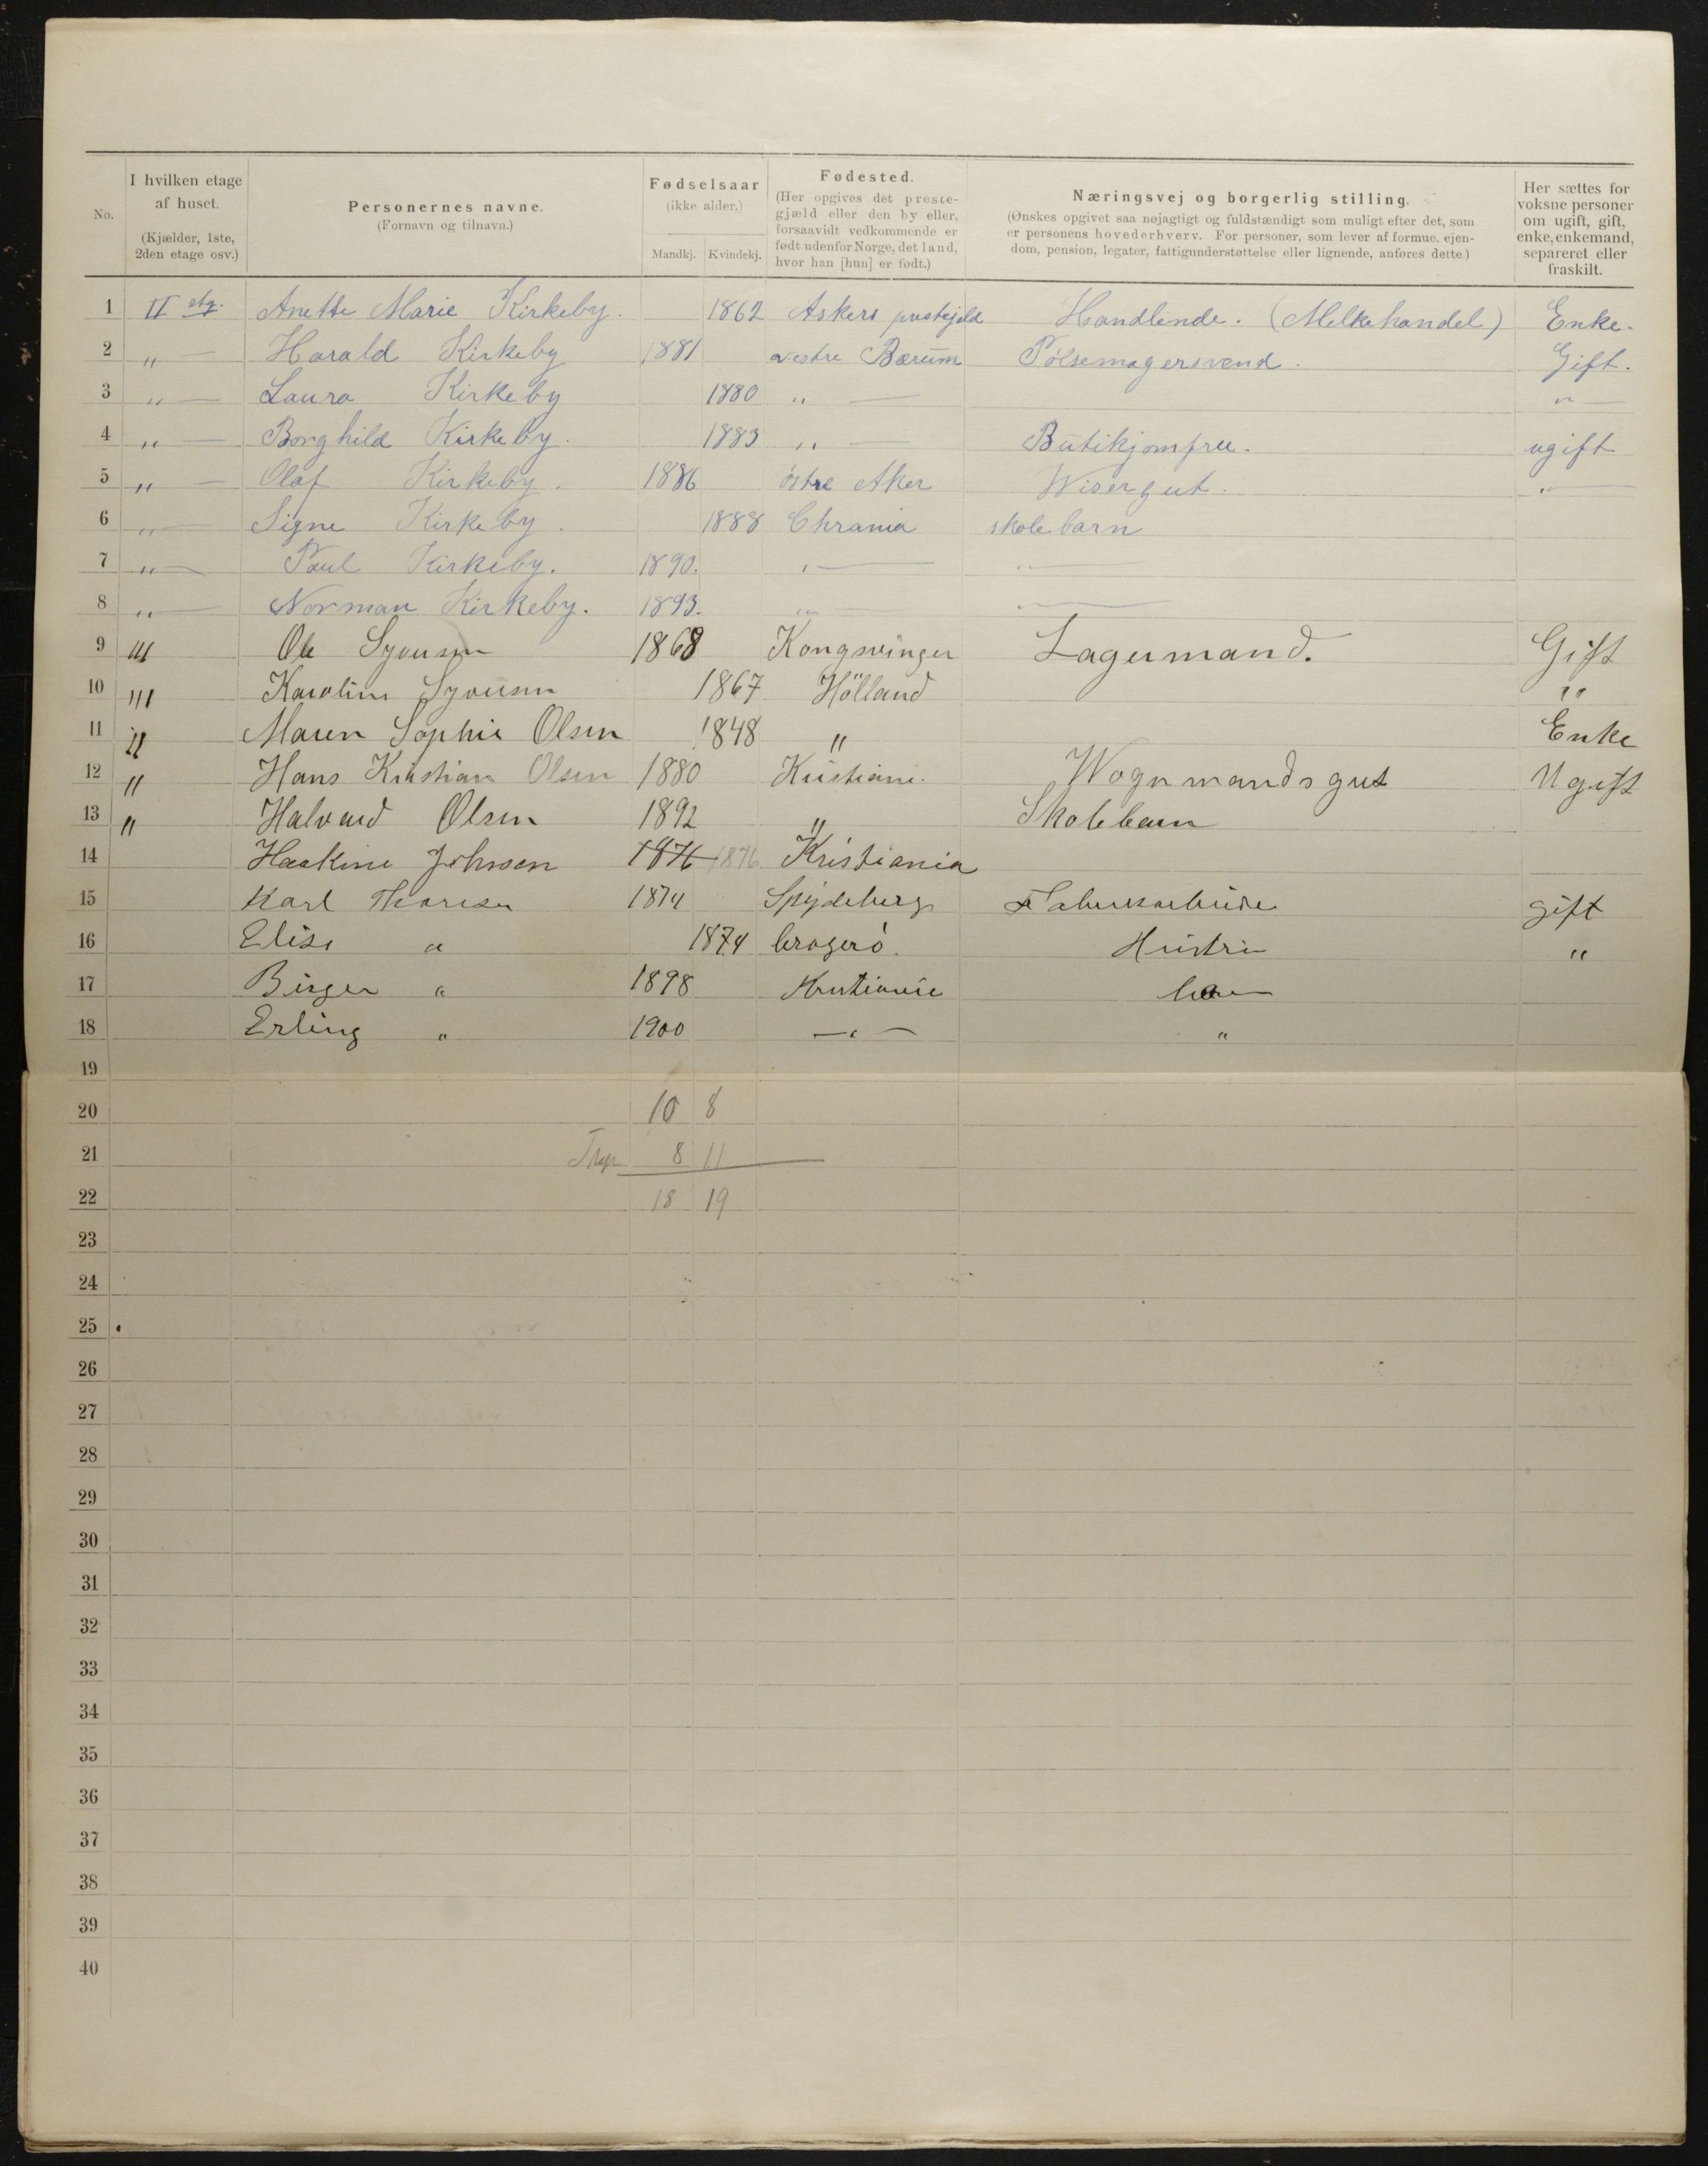 No.
I hvilken etage af huset. (Kjælder, 1ste, 2den etage osv.)
Personernes navne. (Fornavn og tilnavn.)
Fødselsaar (ikke alder.) Mandkj. Kvindekj.
Fødested. (Her opgives det prestegjæld eller den by eller, forsaavidt vedkommende er født udenfor Norge, det land, hvor han [hun] er født.)
Næringsvej og borgerlig stilling. (Ønskes opgivet saa nøjagtigt og fuldstændigt som muligt efter det, som er personens hovederhverv. For personer, som lever af formue, ejendom, pension, legater, fattigunderstøttelse eller lignende, anføres dette.)
Her sættes for voksne personer om ugift, gift, enke, enkemand, separeret eller fraskilt.
1 II etg. Anette Marie Kirkeby. 1862 Askers prestejeld Handlende. (Melkehandel) Enke.
2 " — Harald Kirkeby 1881 vestre Bærum Pølsemagersvend. Gift.
3 " — Laura Kirkeby 1880 " — " —
4 " — Borghild Kirkeby. 1883 " — Butikjomfru. ugift
5 " — Olaf Kirkeby. 1886 østre Aker Wisergut. " —
6 " — Signe Kirkeby. 1888 Chrania skolebarn
7 " — Paul Kirkeby. 1890. " — "
8 " — Norman Kirkeby. 1893. " — " —
9 III Ole Syversen 1868 Kongsvinger Lagermand. Gift
10 III Karoline Syversen 1867 Hölland "
11 II Maren Sophie Olsen 1848 " Enke
12 " Hans Kristian Olsen 1880 Kristiania. Wognmandsgut Ugift
13 " Halvard Olsen 1892 " Skolebarn
14 Haakine Johnsen 1876 1876 Kristiania
15 Karl Thoresen 1874 Spydeberg Fabrikarbeider gift
16 Elise " 1874 Kragerö. Hustru "
17 Birger " 1898 Kristiania barn
18 Erling " 1900 — " — "
19
20 10 8
21 8 11
22 18 19
23
24
25
26
27
28
29
30
31
32
33
34
35
36
37
38
39
40